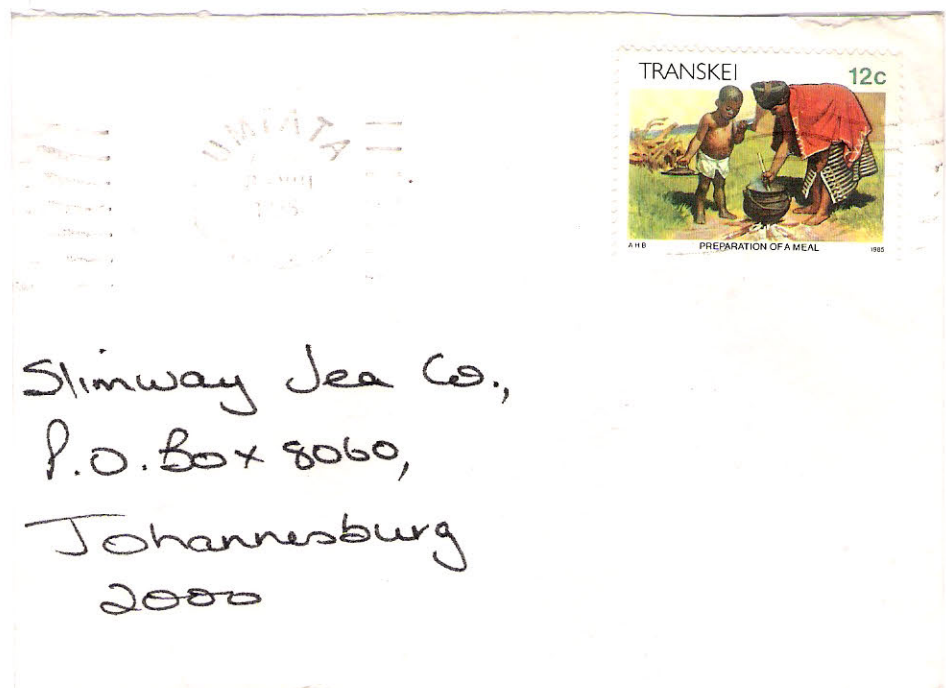 TRANSKEI 12c
UMTATA
A H B PREPARATION OF A MEAL 1985
Slimway Tea Co.,
P.O. Box 8060,
Johannesburg
2000